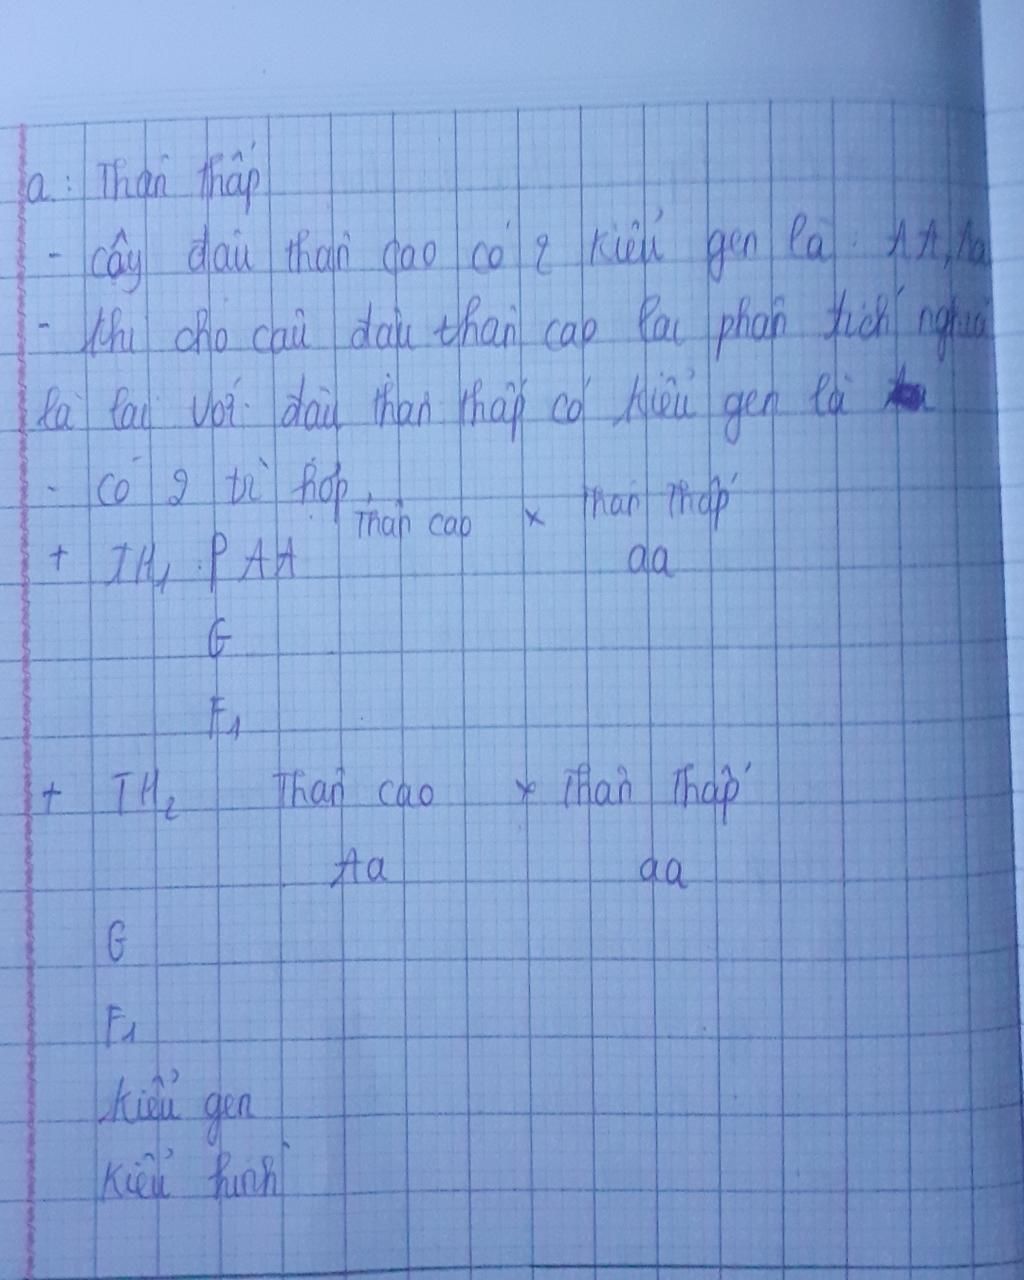 a: Thân thấp
- cây đậu thân cao có 2 kiểu gen là: AA, Aa
- khi cho cây đậu thân cao lai phân tích nghĩa
là lai với đậu thân thấp có kiểu gen là
- có 2 tr hợp
Thân cao x Thân Thấp
+ TH1 P AA aa
G
F1
+ TH2 Thân cao x Thân Thấp
Aa aa
G
F1
kiểu gen
kiểu hình